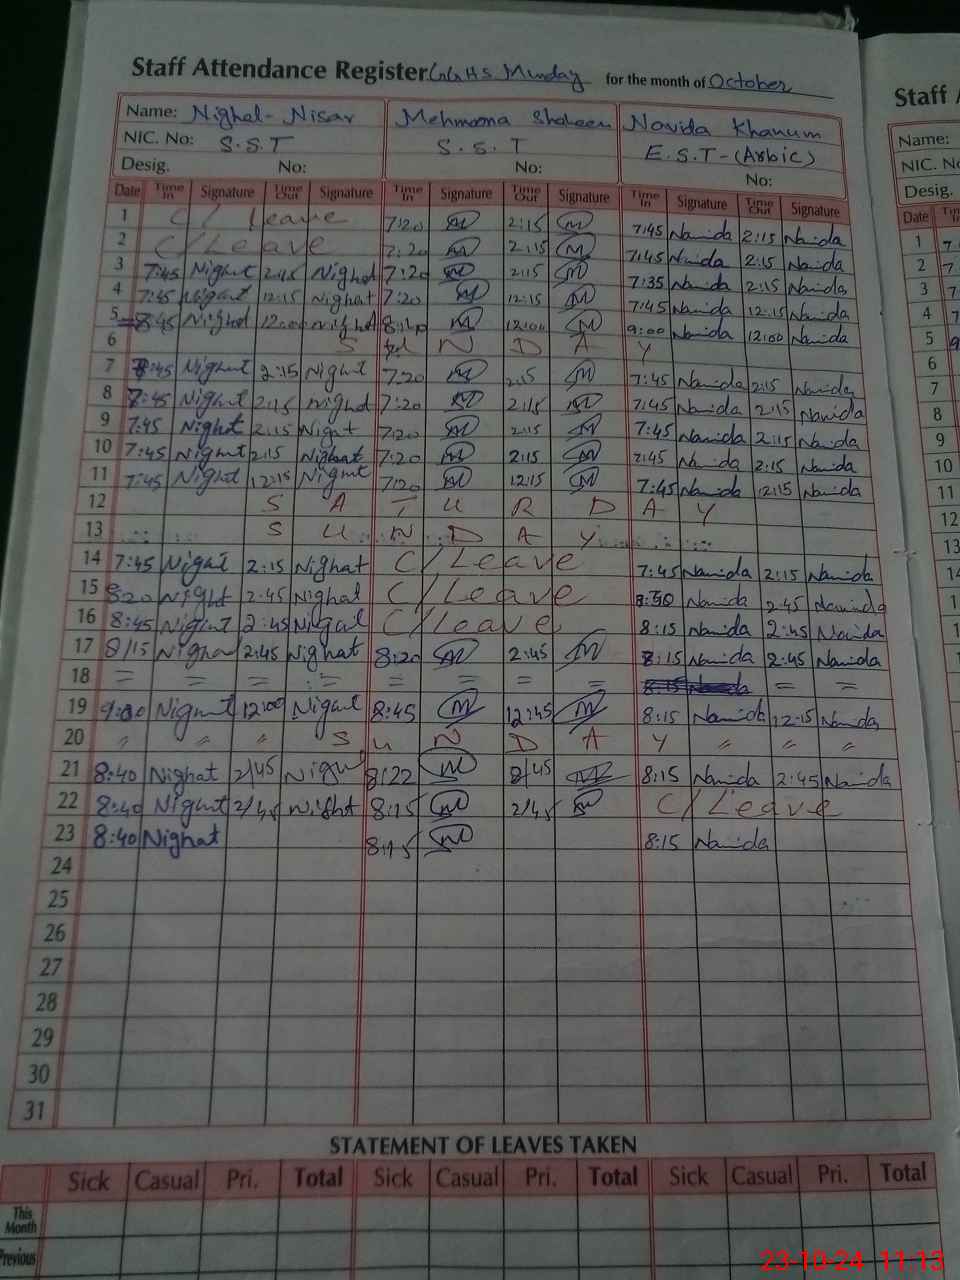 Staff Attendance Register GGHS Munday for the month of October
Staff
Name: Nighat Nisar Mehmoona Shaheen Navida Khanum
Name:
NIC. No: S.S.T S.S.T E.S.T-(Arbic)
NIC. No
Desig. No: No: No:
Desig.
Date Time In Signature Time Out Signature Time In Signature Time Out Signature Time In Signature Time Out Signature
Date
1 C/Leave 7:20 M 2:15 M 7:45 Navida 2:15 Navida
2 C/Leave 7:20 M 2:15 M 7:45 Navida 2:15 Navida
3 7:45 Nighat 2:45 Nighat 7:20 M 2:15 M 7:35 Navida 2:15 Navida
4 7:45 Nighat 12:15 Nighat 7:20 M 12:15 M 7:45 Navida 12:15 Navida
5 8:45 Nighat 12:00 Nighat M 12:00 M 9:00 Navida 12:00 Navida
6 S U N D A Y
7 8:45 Nighat 2:15 Nighat 7:20 M 2:15 M 7:45 Navida 2:15 Navida
8 7:45 Nighat 2:15 Nighat 7:20 M 2:15 M 7:45 Navida 2:15 Navida
9 7:45 Nighat 2:15 Nighat 7:20 M 2:15 M 7:45 Navida 2:15 Navida
10 7:45 Nighat 2:15 Nighat 7:20 M 2:15 M 7:45 Navida 2:15 Navida
11 7:45 Nighat 12:15 Nighat 7:20 M 12:15 M 7:45 Navida 12:15 Navida
12 S A T U R D A Y
13 S U N D A Y
14 7:45 Nighat 2:15 Nighat C/Leave 7:45 Navida 2:15 Navida
15 8:20 Nighat 2:45 Nighat C/Leave Navida 2:45 Navida
16 8:45 Nighat 2:45 Nighat C/Leave 8:15 Navida 2:45 Navida
17 8/15 Nighat 2:45 Nighat 8:20 M 2:45 M 8:15 Navida 2:45 Navida
18 = = = = = = = = = =
19 9:00 Nighat 12:00 Nighat 8:45 M 12:45 M 8:15 Navida 12:15 Navida
20 " " " S U N D A Y " " "
21 8:40 Nighat 2/45 Nighat 8:22 M 2/45 M 8:15 Navida 2:45 Navida
22 8:40 Nighat 2/45 Nighat 8:15 M 2/45 M C/Leave
23 8:40 Nighat 8:15 M 8:15 Navida
24
25
26
27
28
29
30
31
STATEMENT OF LEAVES TAKEN
Sick Casual Pri. Total Sick Casual Pri. Total Sick Casual Pri. Total
This Month
Previous
23-10-24 11:13